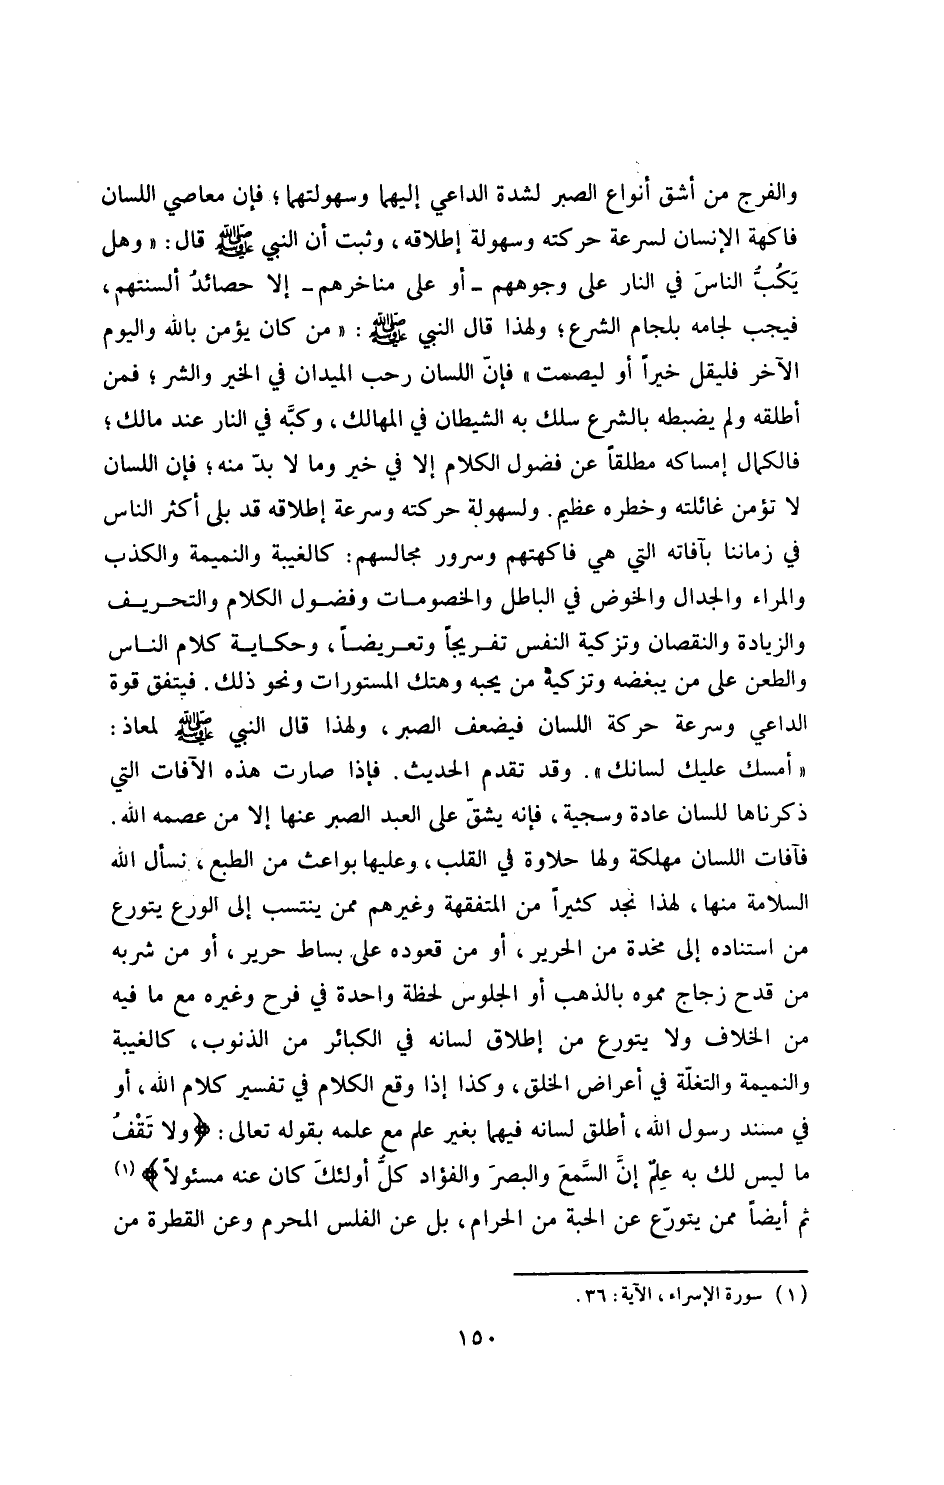 والفرج من أشق أنواع الصبر لشدة الداعي إليها وسهولتها؛ فإن معاصي اللسان
فاكهة الإنسان لسرعة حركته وسهولة إطلاقه، وثبت أن النبي ﷺ قال: « وهل
يَكُبُّ الناسَ في النار على وجوههم - أو على مناخرهم - إلا حصائدُ ألسنتهم،
فيجب لجامه بلجام الشرع؛ ولهذا قال النبي ﷺ : « من كان يؤمن بالله واليوم
الآخر فليقل خيراً أو ليصمت» فإنّ اللسان رحب الميدان في الخير والشر؛ فمن
أطلقه ولم يضبطه بالشرع سلك به الشيطان في المهالك، وكبَّه في النار عند مالك؛
فالكمال إمساكه مطلقاً عن فضول الكلام إلا في خير وما لا بدّ منه؛ فإن اللسان
لا تؤمن غائلته وخطره عظيم. ولسهولة حركته وسرعة إطلاقه قد بلي أكثر الناس
في زماننا بآفاته التي هي فاكهتهم وسرور مجالسهم: كالغيبة والنميمة والكذب
والمراء والجدال والخوض في الباطل والخصومات وفضول الكلام والتحريف
والزيادة والنقصان وتزكية النفس تفريجاً وتعريضاً، وحكاية كلام الناس
والطعن على من يبغضه وتزكية من يحبه وهتك المستورات ونحو ذلك. فيتفق قوة
الداعي وسرعة حركة اللسان فيضعف الصبر، ولهذا قال النبي ﷺ لمعاذ:
« أمسك عليك لسانك». وقد تقدم الحديث. فإذا صارت هذه الآفات التي
ذكرناها للسان عادة وسجية، فإنه يشقّ على العبد الصبر عنها إلا من عصمه الله.
فآفات اللسان مهلكة ولها حلاوة في القلب، وعليها بواعث من الطبع، نسأل الله
السلامة منها، لهذا نجد كثيراً من المتفقهة وغيرهم ممن ينتسب إلى الورع يتورع
من استناده إلى مخدة من الحرير، أو من قعوده على بساط حرير، أو من شربه
من قدح زجاج مموه بالذهب أو الجلوس لحظة واحدة في فرح وغيره مع ما فيه
من الخلاف ولا يتورع من إطلاق لسانه في الكبائر من الذنوب، كالغيبة
والنميمة والتغلّة في أعراض الخلق، وكذا إذا وقع الكلام في تفسير كلام الله، أو
في مسند رسول الله، أطلق لسانه فيها بغير علم مع علمه بقوله تعالى: ﴿ولا تَقْفُ
ما ليس لك به عِلمٌ إنَّ السَّمعَ والبصرَ والفؤاد كلُّ أولئكَ كان عنه مسئولاً﴾ (١)
ثم أيضاً ممن يتورّع عن الحبة من الحرام، بل عن الفلس المحرم وعن القطرة من
(١) سورة الإسراء، الآية: ٣٦.
١٥٠